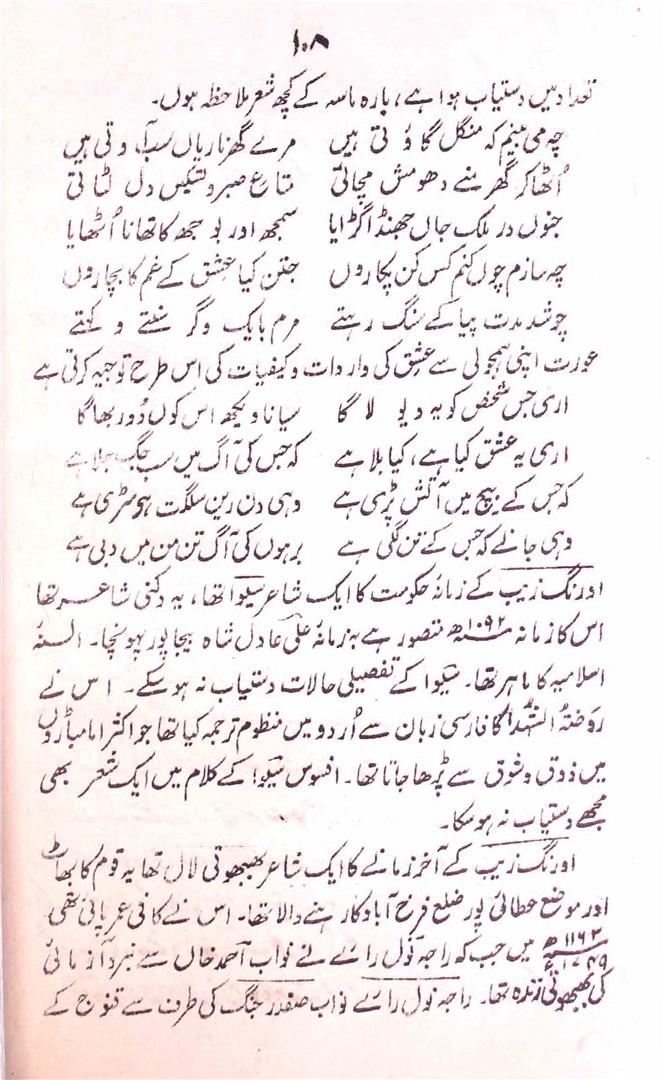 ۱۰۸
تعداد میں دستیاب ہوا ہے، بارہ ماسہ کے کچھ شعر ملاحظہ ہوں۔
چہ می بینم کہ منگل گاؤ تی ہیں مرے گھر ناریاں سب آوتی ہیں
اُٹھا کر گھر منے دھومش مچائی متاع صبر و تسکیں دل لٹاتی
جنوں در ملک جاں جھنڈا گڑایا سمجھ اور بوجھ کا تھانا اُٹھایا
چہ سازم چوں کنم کس کن پکاروں جتن کیا عشق کے غم کا بچاروں
چو شد مدت پیا کے سنگ رہتے مرم بایک وگر سنتے و کہتے
عورت اپنی ہمجولی سے عشق کی واردات و کیفیات کی اس طرح توجیہ کرتی ہے
اری جس شخص کو یہ دیو لاگا سیانا دیکھ اس کوں دُور بھاگا
اری یہ عشق کیا ہے، کیا بلا ہے کہ جس کی آگ میں سب جگ جلا ہے
کہ جس کے بیچ میں آتش پڑی ہے وہی دن رین سلگت ہو سڑی ہے
وہی جانے کہ جس کے تن لگی ہے برہوں کی آگ تن من میں دبی ہے
اورنگ زیب کے زمانۂ حکومت کا ایک شاعر سیوا تھا، یہ دکنی شاعر تھا
اس کا زمانہ ۱۰۹۲ھ متصور ہے بزمانۂ علی عادل شاہ بیجاپور پہونچا۔ السنۂ
اسلامیہ کا ماہر تھا۔ سیوا کے تفصیلی حالات دستیاب نہ ہو سکے۔ اس نے
روضۃ الشہدا کا فارسی زبان سے اُردو میں منظوم ترجمہ کیا تھا جو اکثر امامباڑوں
میں ذوق و شوق سے پڑھا جاتا تھا۔ افسوس سیوا کے کلام میں ایک شعر بھی
مجھے دستیاب نہ ہو سکا۔
اورنگ زیب کے آخر زمانے کا ایک شاعر بھبھوتی لال تھا یہ قوم کا بھاٹ
اور موضع عطائی پور ضلع فرخ آباد کا رہنے والا تھا۔ اس نے کافی عمر پائی تھی
۱۱۶۳ھ ۱۷۴۹ء میں جب کہ راجہ نول رائے نے نواب احمد خاں سے نبرد آزمائی
کی بھبھوتی زندہ تھا۔ راجہ نول رائے نواب صفدر جنگ کی طرف سے قنوج کے